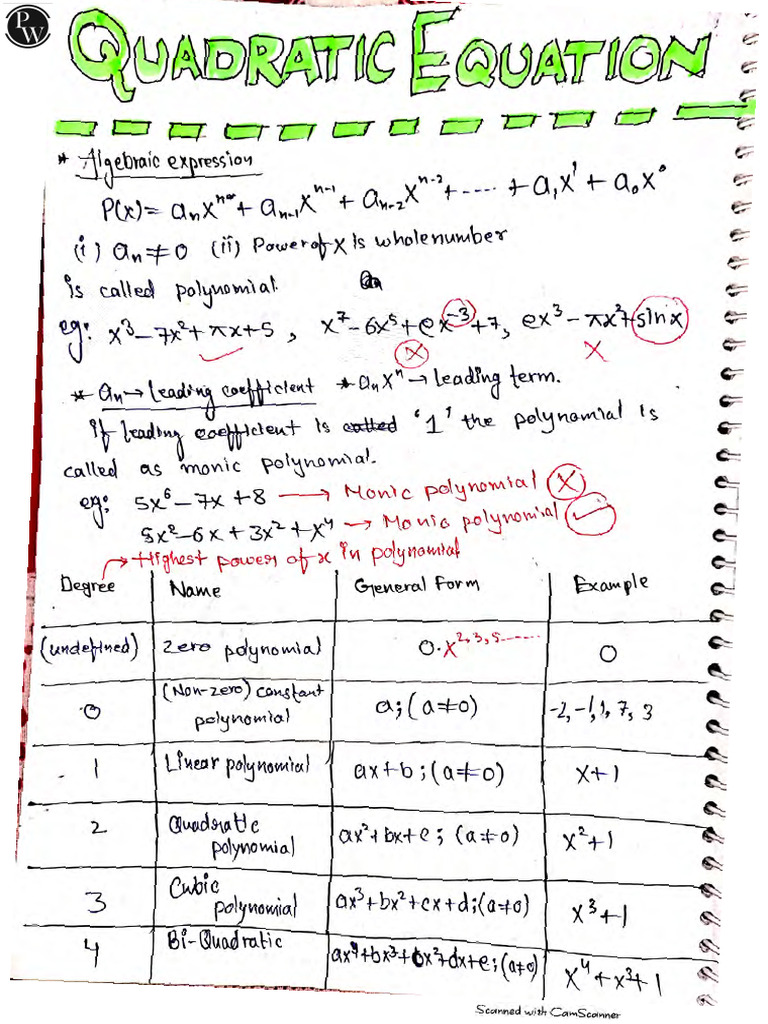 PW
QUADRATIC EQUATION
* Algebraic expression
P(x) = aₙxⁿ + aₙ₋₁xⁿ⁻¹ + aₙ₋₂xⁿ⁻² + ..... + a₁x¹ + a₀x⁰
(i) aₙ ≠ 0 (ii) Power of x is whole number
is called polynomial.
eg: x³ – 7x² + πx + 5 , x⁷ – 6x⁵ + ex⁻³ + 7, ex³ – πx² + sin x
* aₙ → leading coefficient * aₙxⁿ → leading term.
If leading coefficient is called '1' the polynomial is
called as monic polynomial.
eg: 5x⁶ – 7x + 8 → Monic polynomial
5x² – 6x + 3x² + x⁴ → Monic polynomial
→ Highest power of x in polynomial
Degree Name General Form Example
(undefined) Zero polynomial 0·x²,³,⁵...... 0
0 (Non-zero) constant polynomial a; (a≠0) -2, -1, 1, 7, 3
1 Linear polynomial ax+b; (a≠0) x+1
2 Quadratic polynomial ax²+bx+c; (a≠0) x²+1
3 Cubic polynomial ax³+bx²+cx+d; (a≠0) x³+1
4 Bi-Quadratic ax⁴+bx³+cx²+dx+e; (a≠0) x⁴+x³+1
Scanned with CamScanner